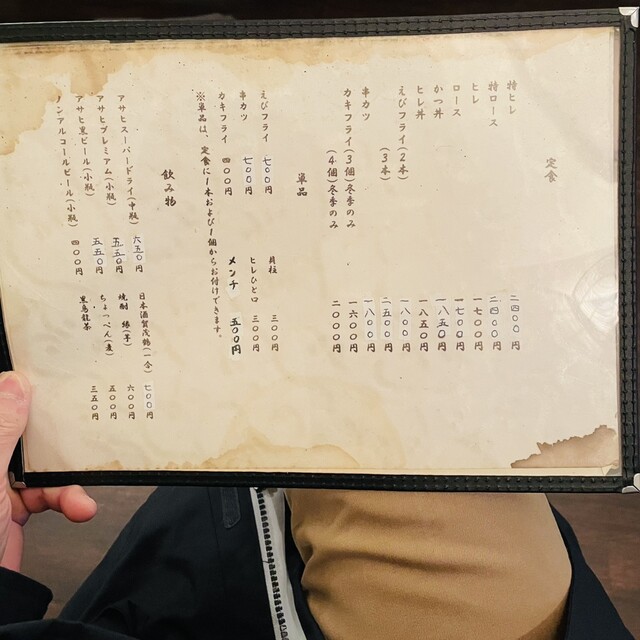 定食
特ヒレ 二四〇〇円
特ロース 二四〇〇円
ヒレ 一七〇〇円
ロース 一七〇〇円
かつ丼 一八五〇円
ヒレ丼 一八五〇円
えびフライ(2本) 一八〇〇円
(3本) 二五〇〇円
串カツ 一八〇〇円
カキフライ(3個)冬季のみ 一六〇〇円
(4個)冬季のみ 二〇〇〇円
単品
えびフライ 七〇〇円
串カツ 七〇〇円
カキフライ 四〇〇円
貝柱 三〇〇円
ヒレひと口 三〇〇円
メンチ 五〇〇円
※単品は、定食に1本および1個からお付けできます。
飲み物
アサヒスーパードライ(中瓶) 六五〇円
アサヒプレミアム(小瓶) 五五〇円
アサヒ黒ビール(小瓶) 五五〇円
ノンアルコールビール(小瓶) 四〇〇円
日本酒賀茂鶴(一合) 七〇〇円
焼酎 縁(芋) 六〇〇円
ちょっぺん(麦) 五〇〇円
黒烏龍茶 三五〇円